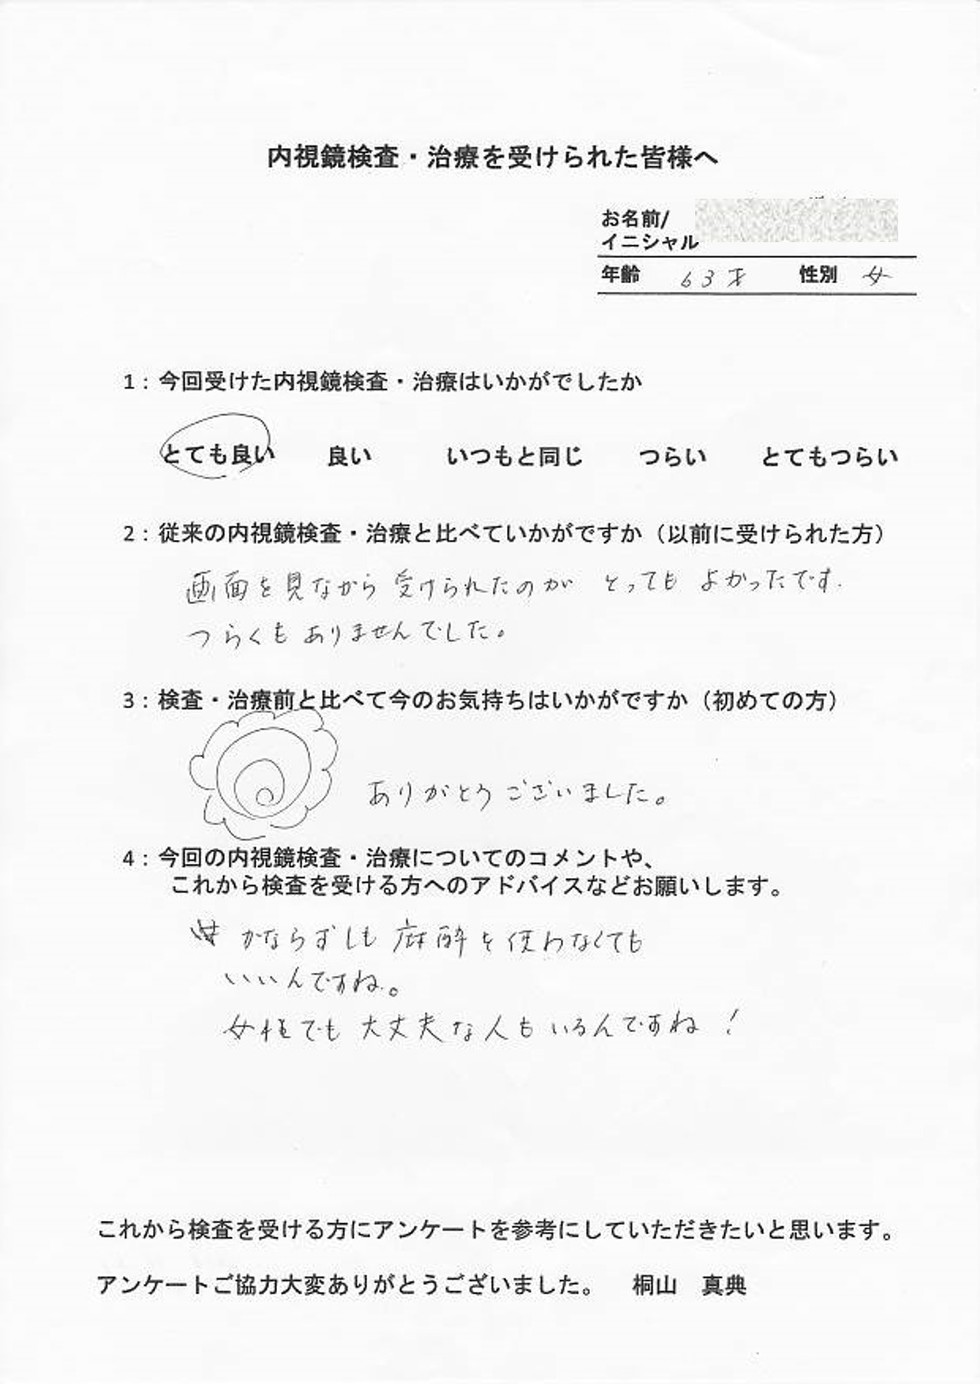 内視鏡検査・治療を受けられた皆様へ
お名前/
イニシャル
年齢 63才 性別 女
1:今回受けた内視鏡検査・治療はいかがでしたか
とても良い 良い いつもと同じ つらい とてもつらい
2:従来の内視鏡検査・治療と比べていかがですか(以前に受けられた方)
画面を見ながら受けられたのが とっても よかったです.
つらくもありませんでした。
3:検査・治療前と比べて今のお気持ちはいかがですか(初めての方)
ありがとうございました。
4:今回の内視鏡検査・治療についてのコメントや、
これから検査を受ける方へのアドバイスなどお願いします。
かならずしも 麻酔を使わなくても
いいんですね。
女性でも 大丈夫な人もいるんですね!
これから検査を受ける方にアンケートを参考にしていただきたいと思います。
アンケートご協力大変ありがとうございました。 桐山 真典